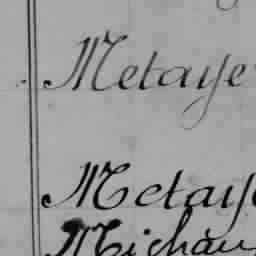 Metaye
Metay
Michau